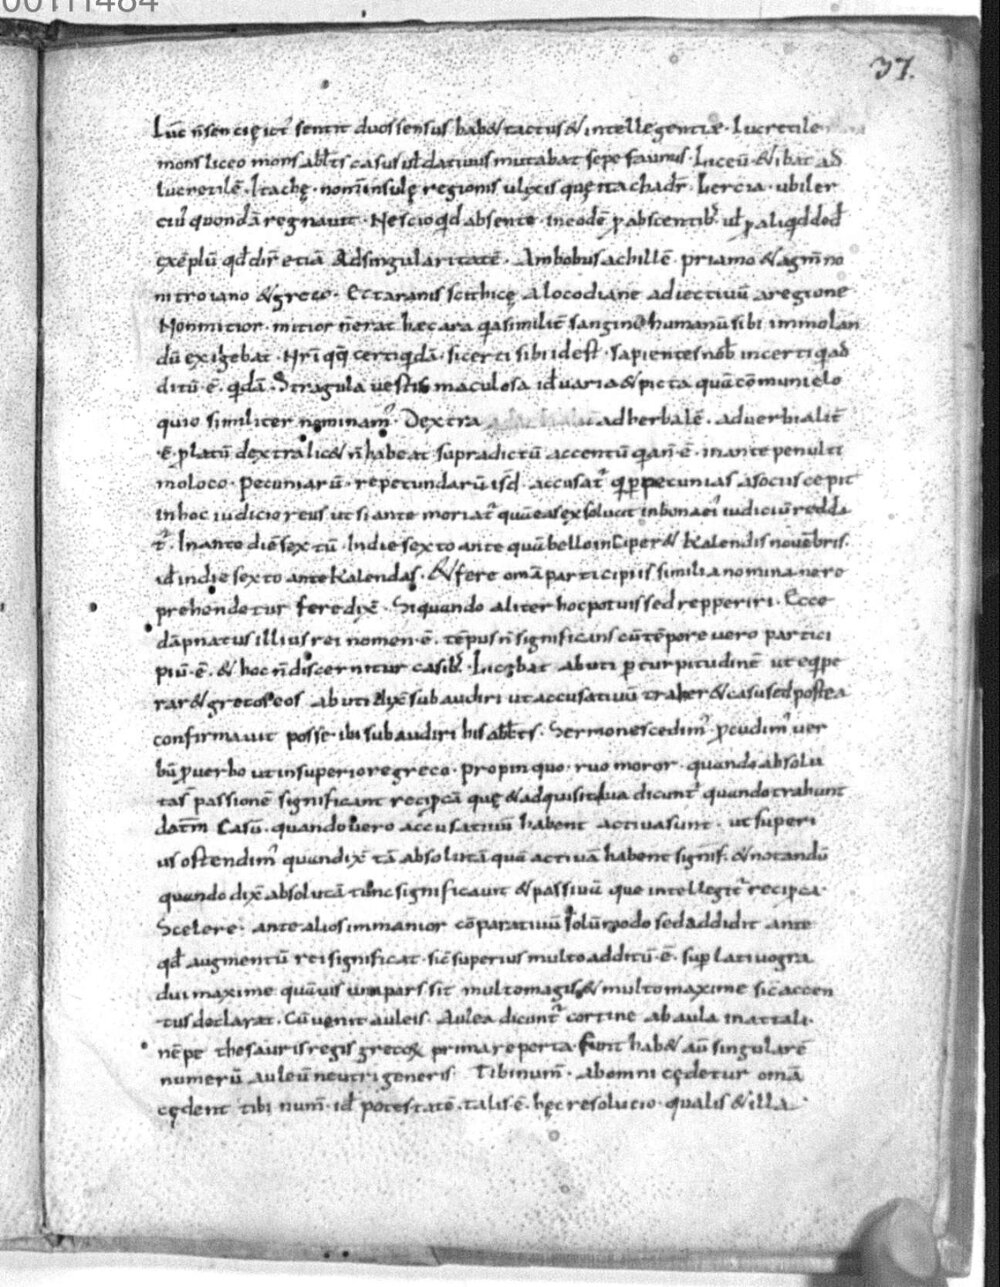 37.
Luc̄ n̄ sen cię ict̄ sentit duos sensus hab& tactus & intellegentiæ. Lucretile
mons liceo mons abl̄ts casus ul̄ datiuus mutabat sepe faunus. Liceū & ibat ad
lucretilē. Itachę. nom̄ insulę regionis ulyxis quę ita chadr̄. Lercia. ubi ler
ciū quondā regnauit. Nescio qd̄ absente. in eodē p̱ abscentib; ul̄ p̱ aliqd ded̄
exēplū qd̄ dir̄ etiā Ad singularitatē. Ambobus achillē. priamo & agm̄no
ni troiano & greco. Et taranis scithicę a loco dianę adiectiuū a regione
Non mitior. mitior n̄ erat hec ara q̄a similit̄ sanginē humanū sibi immolan
dū exigebat. Nr̄i qq̄ certi qdā. sicerti sibi id est. sapientes nob̄ incerti q̄ ad
ditū .ē. qdā. Stragula uestis maculosa id̄ uaria & picta quā cōmuni elo
quio similiter nominam᷒. Dextra adherbalē. aduerbialit̄
.ē. p̱ latū dextra lic& n̄ habeat supradictū accentū q̄a n̄ .ē. in antepenulti
mo loco. Pecuniarū. repetundarū isd̄. accusat᷒ q̄ p̱ pecunias a sociis cepit
in hoc iudicio reus ut si ante moriat᷒ quā eas exsoluat in bona ei᷒ iudiciū redda
t᷒. In ante diē sextū. In die sexto ante quā bello inciper& kalendis nouēbris.
id̄ in die sexto ante kalendas. & fere om̄a participiis similia nomina uero
prehendetur fere dix̄. Si quando aliter hoc potuissed repperiri. Ecce
dāpnatus illius rei nomen .ē. tēpus n̄ significans cū tēpore uero partici
piū .ē. & hoc n̄ discernitur casib;. Licebat abuti p̱ turpitudinē ut eq̄pe
rar& grecos eos abuti dix̄ subaudiri ut accusatiuū traher& casu sed postea
confirmauit posse ibi subaudiri his abl̄ts. Sermones cedim᷒. p̱cudim᷒ uer
bū p̱ uerbo ut in superiore greco. Propinquo. ruo moror. quando absolu
tas passionē significant recip̄cā quę & adquisitiua dicunt᷒ quando trahunt
datm̄ casū. quando uero accusatiuū habent actiua sunt. ut superi
us ostendim᷒ quandix̄ tā absolutā quā actiuā habent signif̄. & notandū
quando dix̄ absolutā tunc significauit & passiuū que intellegit᷒ recip̄ca.
Scelere. ante alios immanior cōparatiuū solūmodo sed addidit ante
qd̄ augmentū rei significat. sic̄ superius multo additū .ē. suplatiuo gra
dui maxime quāuis una pars sit multomagis & multomaxime sic̄ accen
tus declarat. Cū uenit auleis. Aulea dicunt᷒ cortine ab aula in attali.
nēpe thesauris regis grecoꝝ prima reperta sunt hab& aū singularē
numerū auleū neutri generis. Tibi num̄. ab omni cędetur om̄a
cędent tibi num̄. id̄ potestatē. talis .ē. hęc resolutio. qualis & illa.